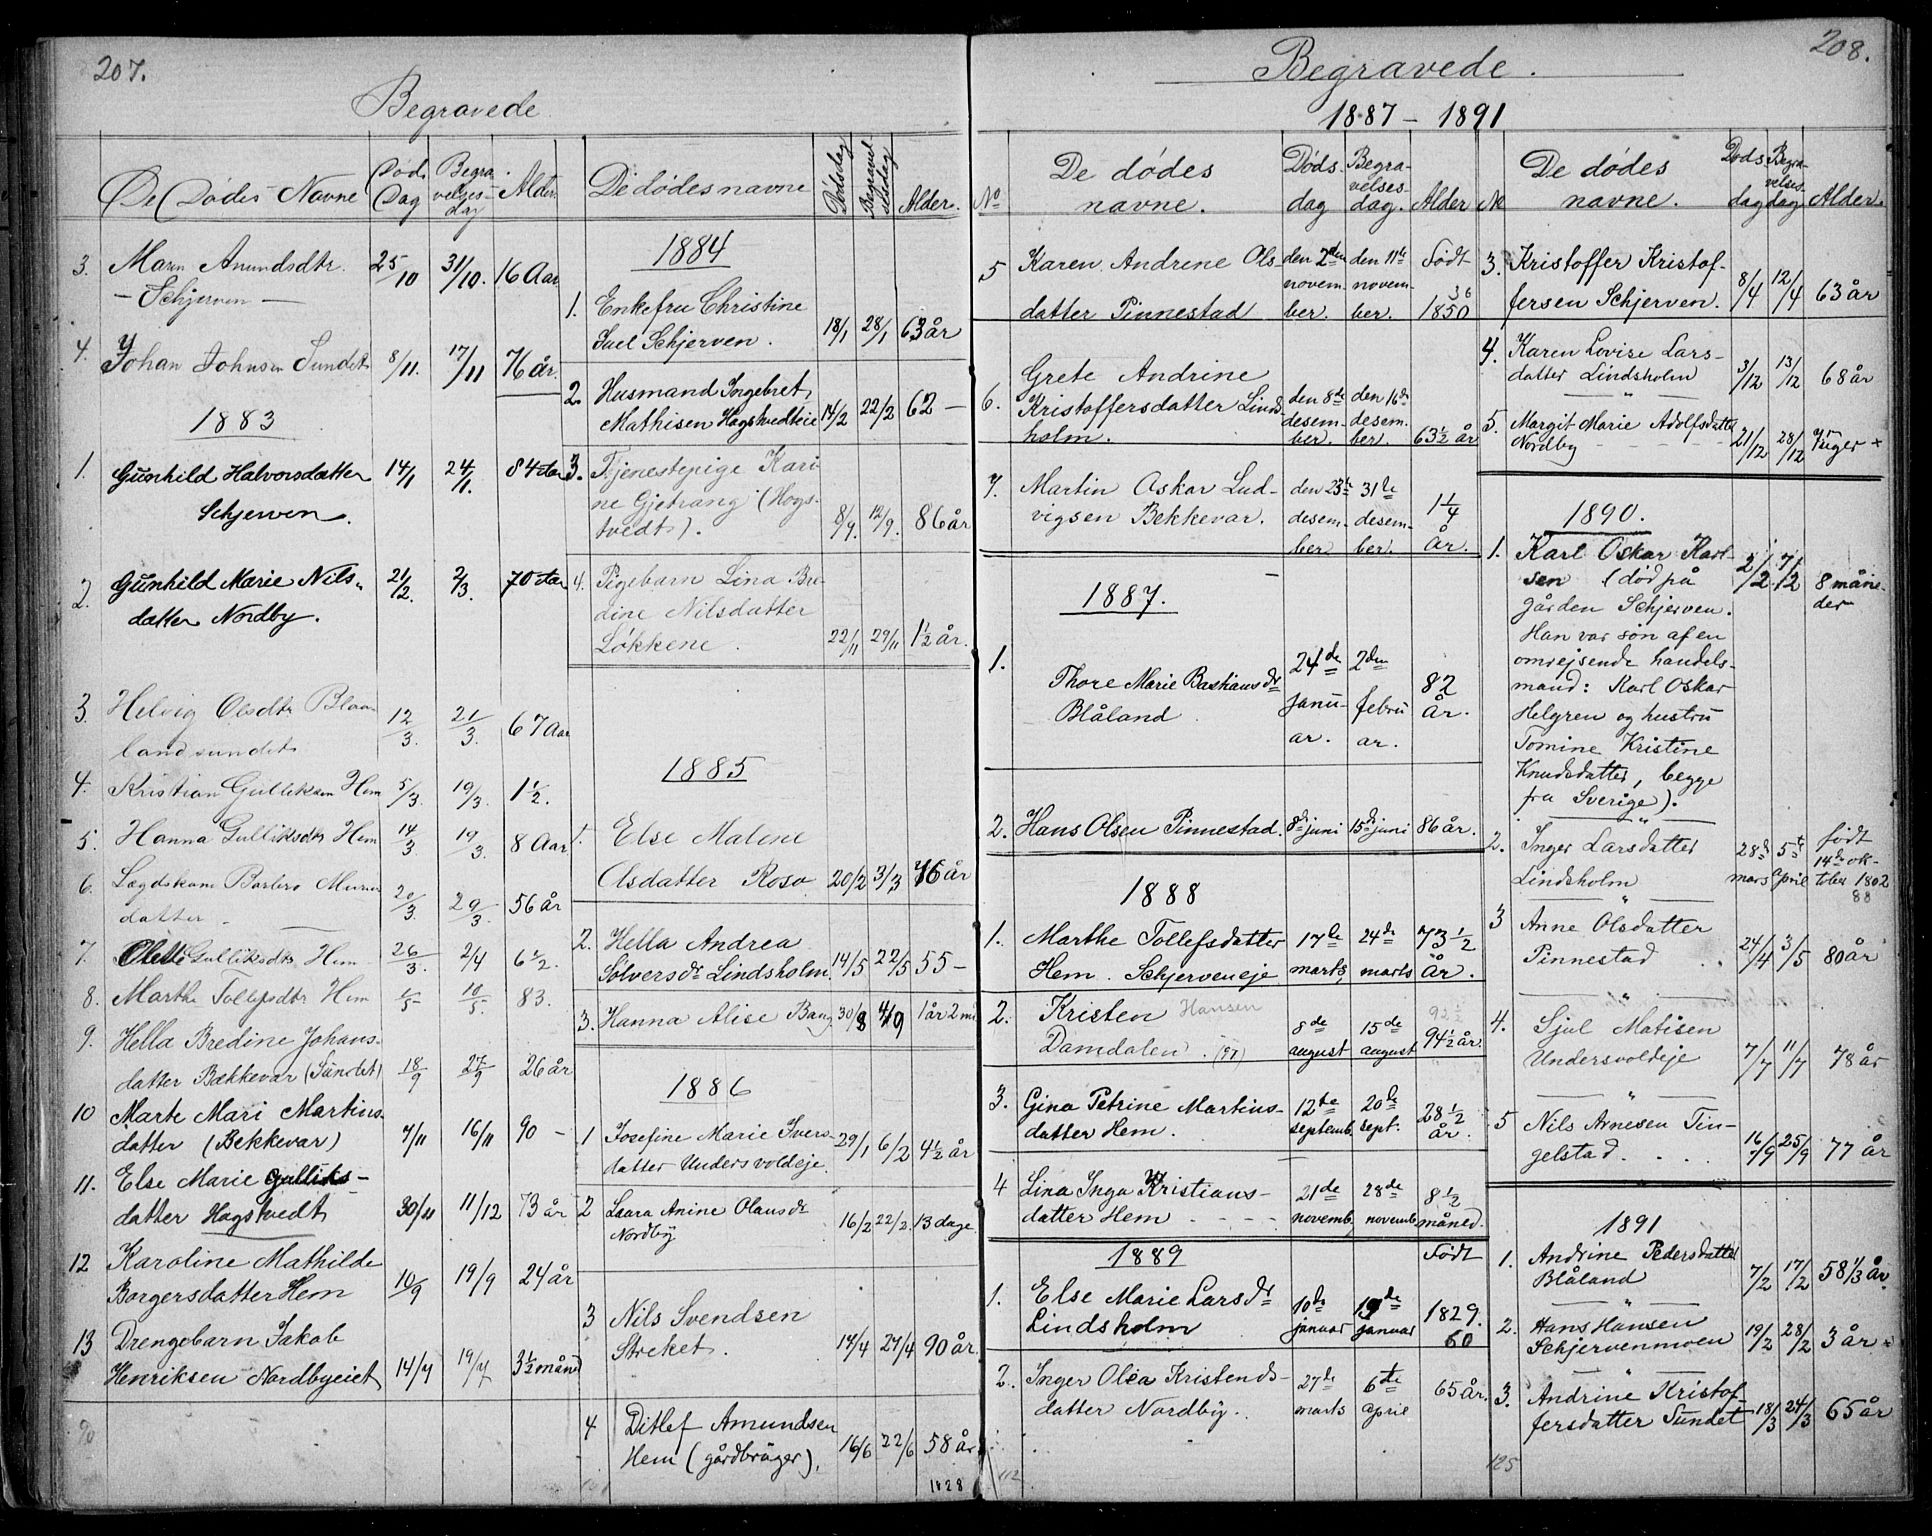 207.
Begravede
De Døde Navne | Døds Dag | Begravelsesdag | Alder
3. Maren Amundsdtr. 25/10 31/10. 16 Aar
— Schjerven —
4. Johan Johnsen Sundet 8/11. 17/11 76 år.
1883
1. Gunhild Halvorsdatter 14/1 24/1. 84 Aar
Schjerven.
2. Gunhild Marie Nils- 21/2. 2/3. 70 Aar
datter Nordby.
3. Helvig Olsdtr Blaa- 12/3. 21/3. 67 Aar
landsundet
4. Kristian Gulliksen Hem 5/3. 19/3. 1½.
5. Hanna Gulliksdtr Hem 14/3 19/3. 8 Aar
6. Lægdskone Barbero
datter — 20/3 29/3. 56 år
7. Olette Gulliksdtr Hem 26/3. 2/4 6½.
8. Marthe Tollefsdtr Hem 1/5 10/5. 83.
9. Hella Bredine Johans-
datter Bækkevar (Sundet) 18/9 27/9 26 år
10 Marte Mari Martins-
datter (Bekkevar) 7/11 16/11 90 —
11. Else Marie Gulliks-
datter Hagstvedt 30/11 11/12 73 år
12 Karoline Mathilde
Borgersdatter Hem 10/9 19/9 24 år
13 Drengebarn Jakob
Henriksen Nordbyeiet 14/7 19/7 3½ måned
De dødes navne | Dødsdag | Begravelsesdag | Alder.
1884
1. Enkefru Christine
Juel Schjerven. 18/1 28/1 63 år
2. Husmand Ingebret
Mathisen Hagstvedteie 14/2 22/2 62 —
3. Tjenestepige Kari-
ne Gjetrang (Hogs-
tvedt). 8/9. 12/9. 86 år
4. Pigebarn Lina Bre-
dine Nilsdatter
Løkkene. 22/11 29/11 1½ år.
1885
1. Else Malene
Olsdatter Roso 20/2 3/3 76 år
2. Hella Andrea
Sølversdr Lindsholm. 14/5 22/5 55 —
3. Hanna Alise Bang 30/8 4/9 1 år 2 m
1886
1 Josefine Marie Ivers-
datter Undersvoldeje. 29/1 6/2 4½ år
2 Laara Anine Olausdr
Nordby 16/2 22/2. 13 dage
3 Nils Svendsen
Streket. 14/4 24/4 90 år.
4 Ditlef Amundsen
Hem (gårdbruger). 16/6 22/6 58 år
1828
208.
Begravede.
1887 — 1891
No | De dødes navne. | Dødsdag | Begravelsesdag. | Alder
5 Karen Andrine Ols- den 2den den 11te Født
datter Pinnestad november. november. 36 1850
6. Grete Andrine
Kristoffersdatter Linds- den 8de den 16de
holm. desember. desember. 63½ år
7. Martin Oskar Lud- den 23de 31te 1¼
vigsen Bekkevar. desember desember. År.
1887.
1. Thore Marie Bastiansdr 24de 2den 82
Blåland januar. februar. år.
2. Hans Olsen Pinnestad. 8de juni 15de juni 86 år.
1888
1. Marthe Tollefsdatter 17de 24de 73½
Hem. Schjerveneje marts marts År.
2. Kristen Hansen 8de 15de 92½
Damdalen. (97) august august 94½ år.
3. Gina Petrine Martins- 12te 20de 28½
datter Hem. septemb. sept. år.
4 Lina Inga Kristians- 21de 28de 8½
datter Hem — — — novemb. novemb. måned.
1889 Født
1. Else Marie Larsdr 10de 19de 1829.
Lindsholm januar januar 60
2. Inger Olea Kristends- 27de 6te 65 år.
datter Nordby. marts April
112
№ | De dødes navne. | Dødsdag | Begravelsesdag | Alder.
3. Kristoffer Kristof-
fersen Schjerven. 8/4 12/4 63 år
4. Karen Lovise Lars-
datter Lindsholm 3/12 13/12 68 år
5. Margit Marie Adolfsdatter
Nordby 21/12 28/12 7 uger +
1890.
1. Karl Oskar Karl- 2/2 7/2 8 måne-
sen (død på der
gården Schjerven.
Han var søn af en
omrejsende handels-
mand: Karl Oskar
Helgren og hustru
Tomine Kristine
Knudsdatter, begge
fra Sverige).
2. Inger Larsdatter 28de 5te født
Lindsholm marts April 14de oktober 1802
88
3 Anne Olsdatter
Pinnestad 24/4 3/5 80 år
4. Sjul Matisen
Undersvoldeje 7/7 11/7 78 år
5 Nils Arnesen Tin-
gelstad. . . . 16/9 25/9 77 år
1891
1. Andrine Pedersdatter
Blåland 7/2 17/2 58⅓ år.
2. Hans Hansen
Schjervenmoen 19/2 28/2 3 år
3. Andrine Kristof-
fersdatter Sundet 18/3 24/3 65 år
125